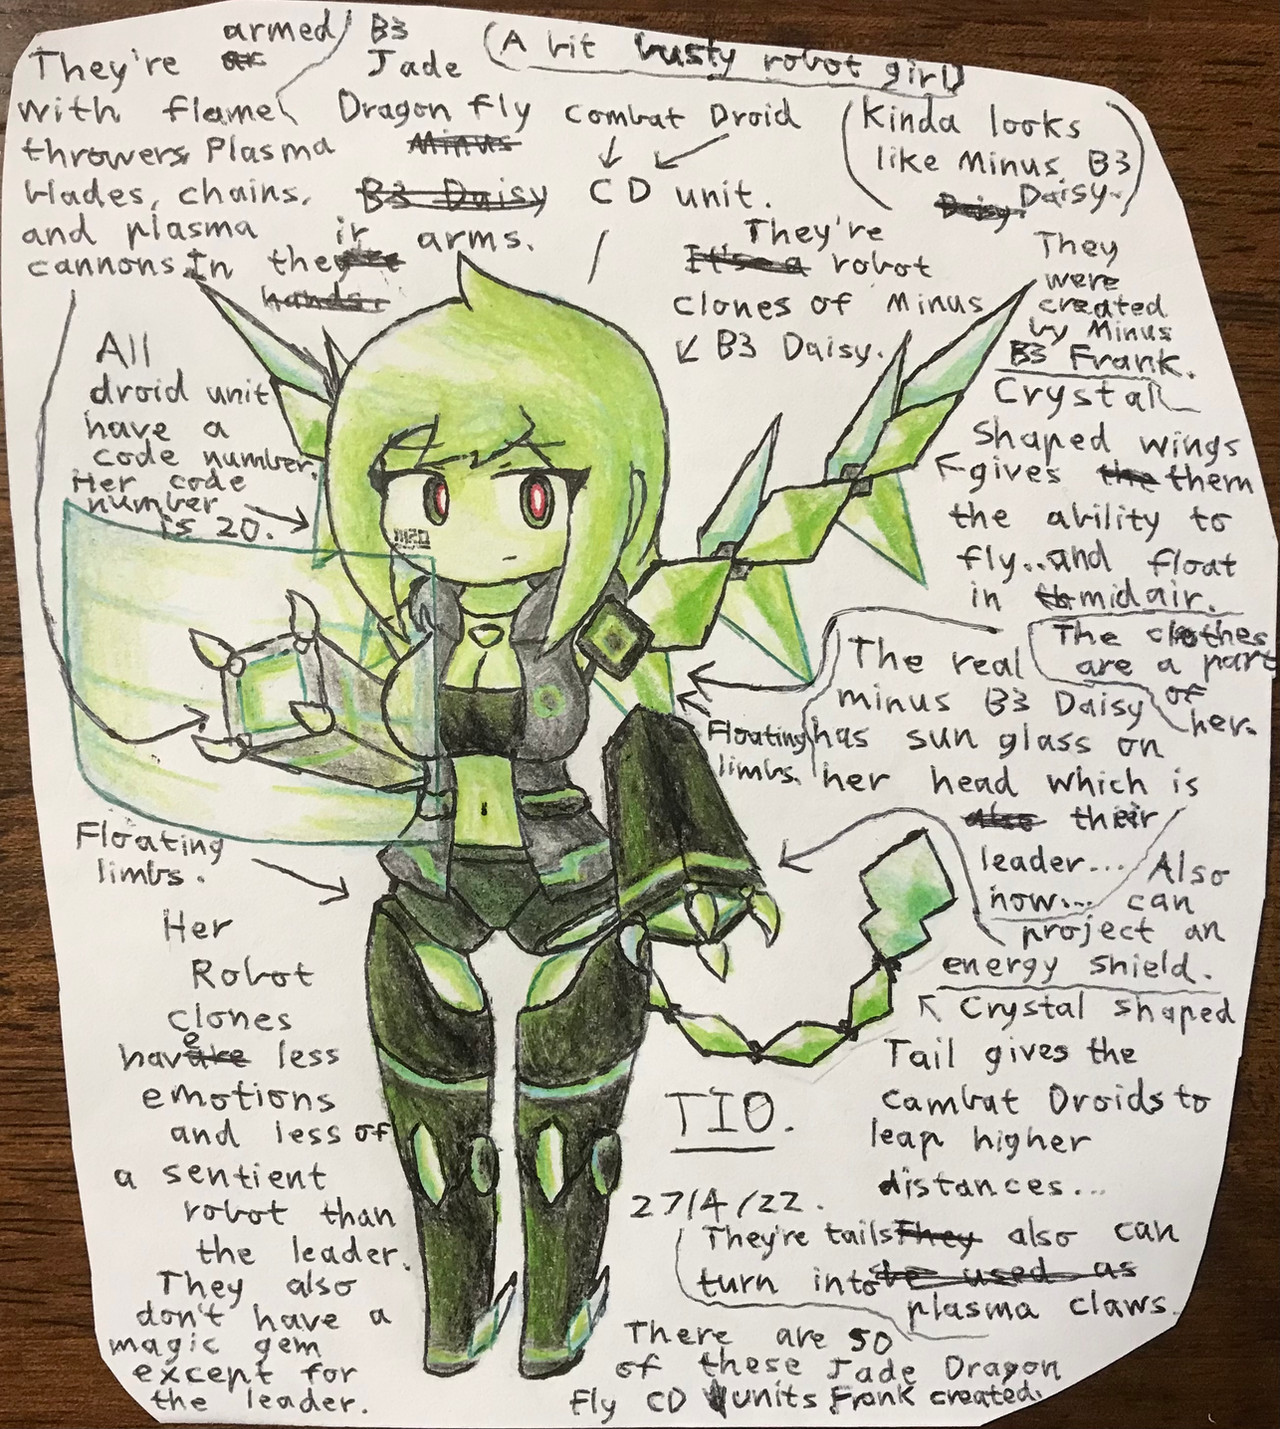 They're armed
with flame
throwers, Plasma
blades, chains,
and plasma
cannons In their arms.
B3
Jade
Dragon fly
CD unit.
Combat Droid
(A bit busty robot girl)
(Kinda looks
like Minus B3
Daisy.)
They're
robot
clones of Minus
B3 Daisy.
They
were
created
by Minus
B3 Frank.
All
droid unit
have a
code number.
Her code
number
is 20.
M20
Crystal
shaped wings
gives them
the ability to
fly..and float
in midair.
The clothes
are a part
of
her.
The real
minus B3 Daisy
has sun glass on
her head which is
their
leader...
now...
Floating
limbs.
Also
can
project an
energy shield.
Floating
limbs.
Crystal shaped
Tail gives the
combat Droids to
leap higher
distances...
Her
Robot
clones
have less
emotions
and less of
a sentient
robot than
the leader.
They also
don't have a
magic gem
except for
the leader.
TIO.
27/4/22.
They're tails also can
turn into
plasma claws.
There are 50
of these Jade Dragon
fly CD units Frank created.